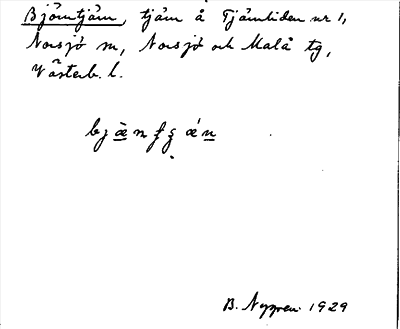 Björntjärn, tjärn å Tjärnliden nr 1,
Norsjö sn, Norsjö och Malå tg,
Västerb. l.
B. Nygren 1929